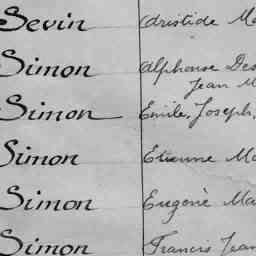 Sevin Aristide Ma
Simon Alphonse Des
Jean M
Simon Emile, Joseph,
Simon Etienne Ma
Simon Eugène Ma
Simon Francis Jean